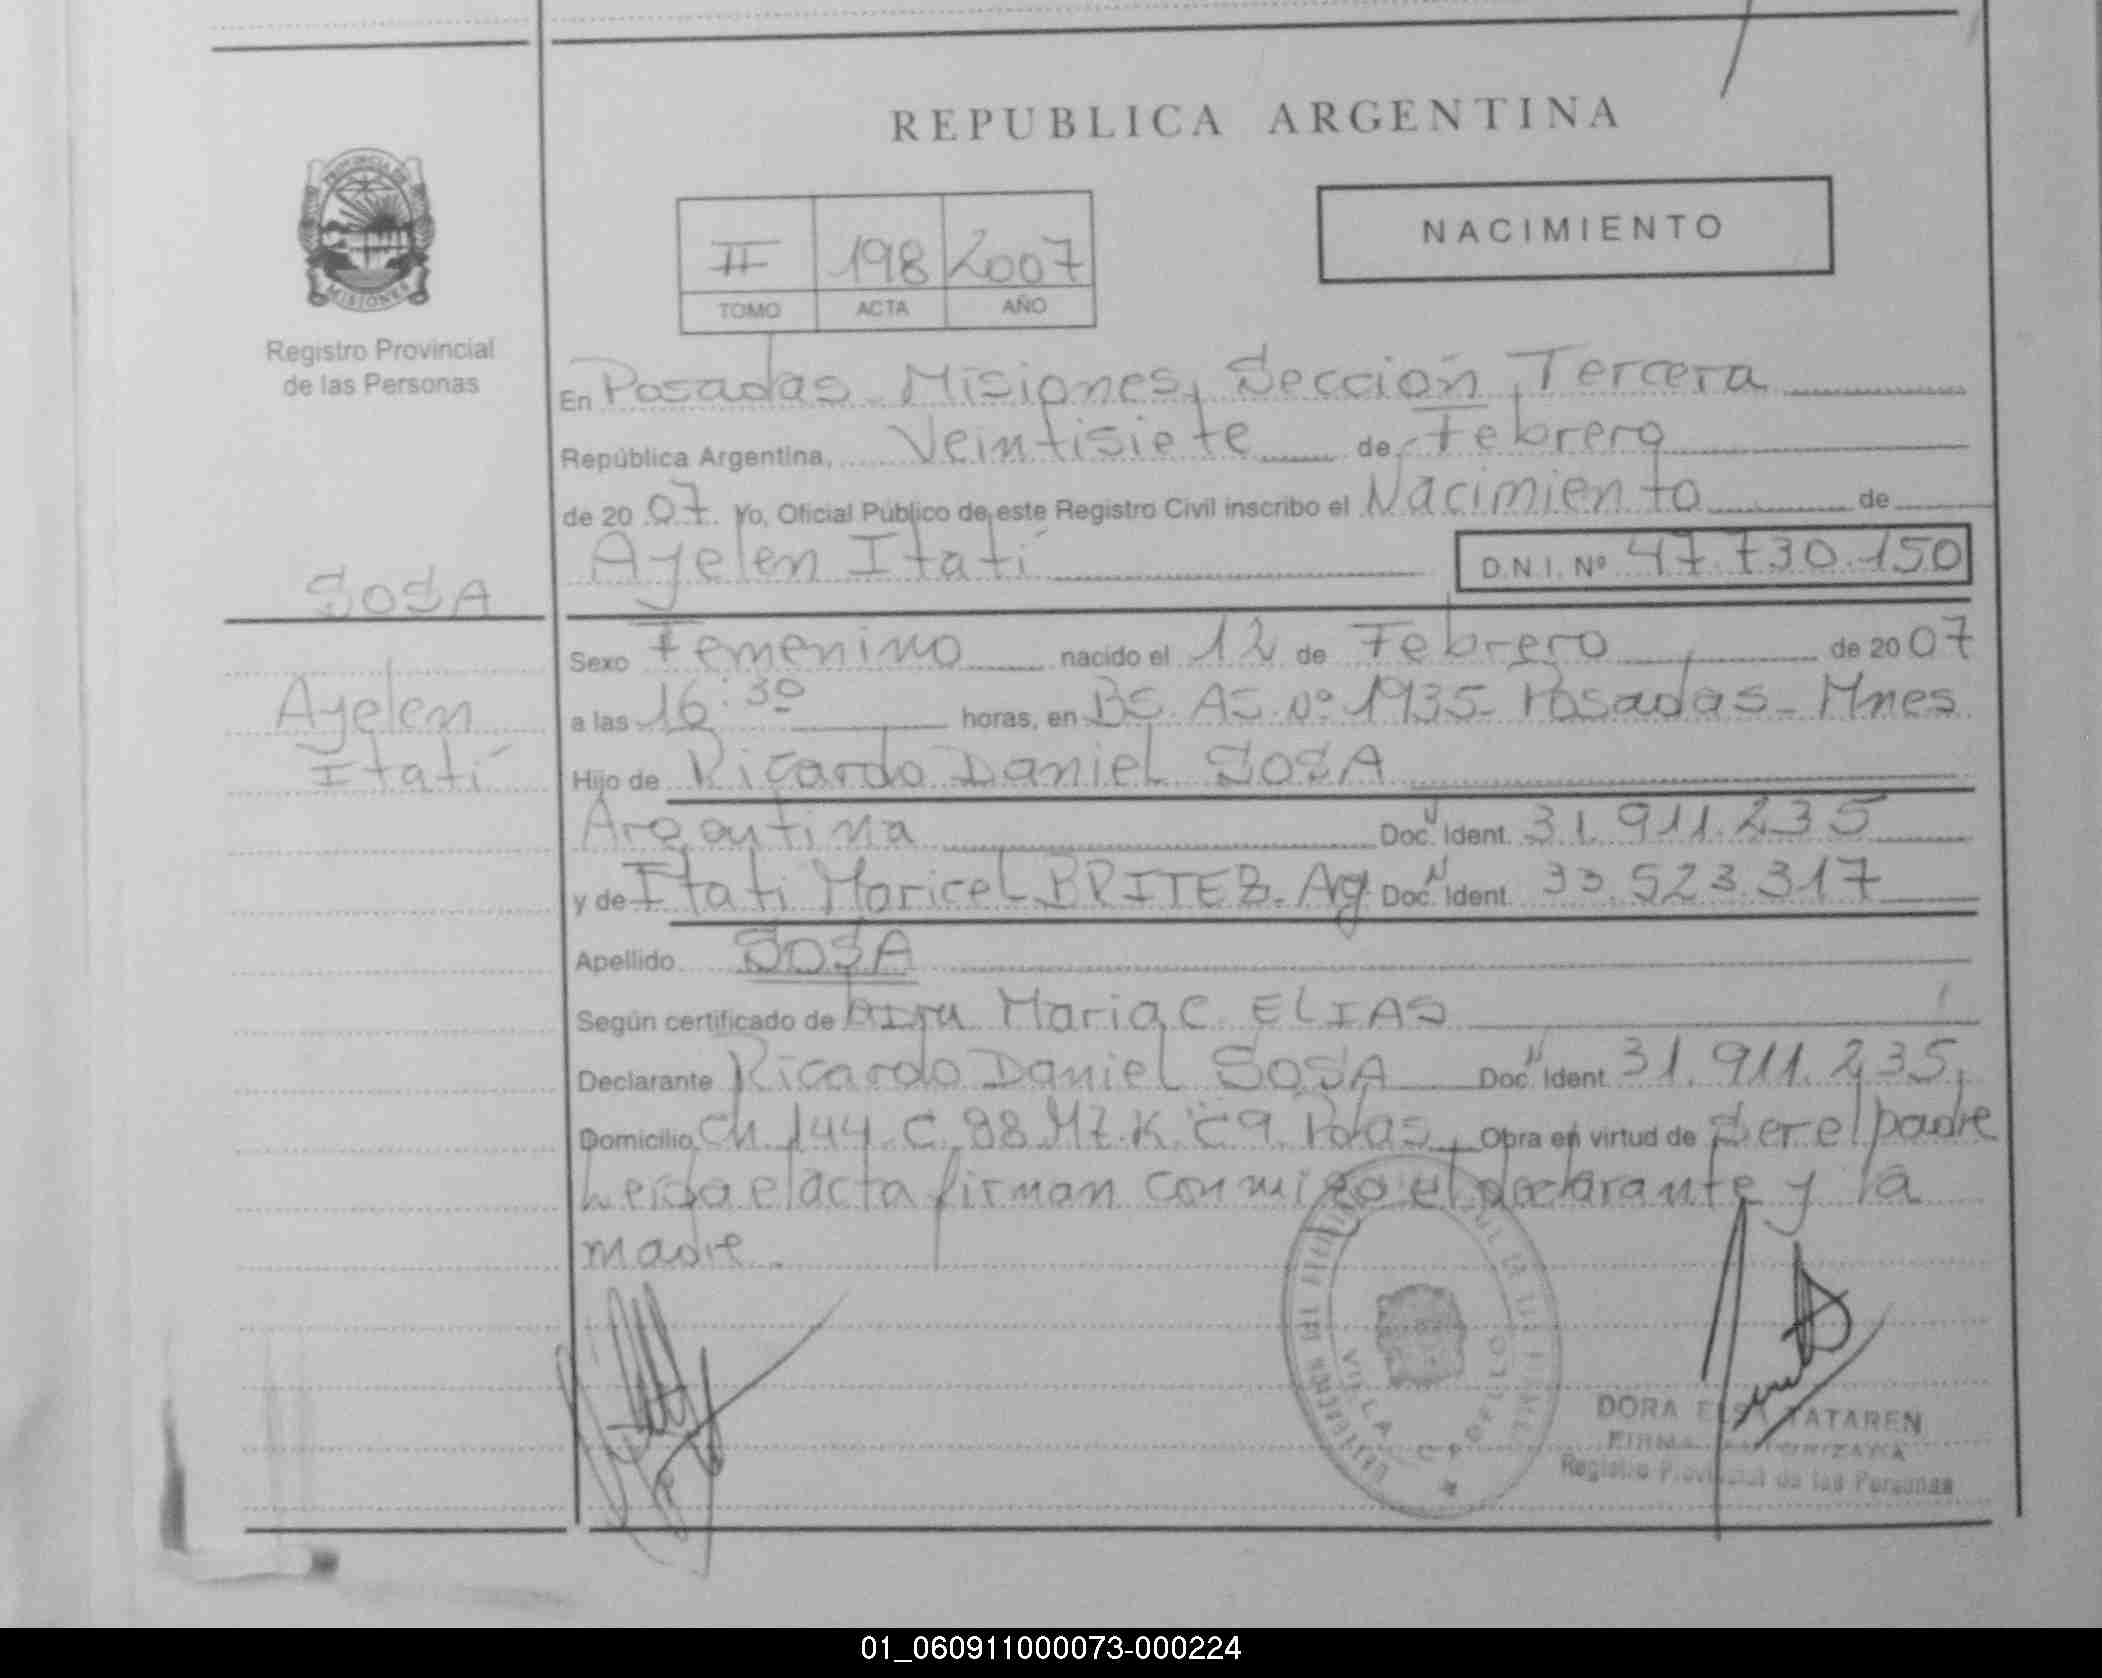 REPUBLICA ARGENTINA
PROVINCIA DE
MISIONES
Registro Provincial
de las Personas
NACIMIENTO
II 198 2007
TOMO ACTA AÑO
En Posadas Misiones, Sección Tercera
República Argentina, Veintisiete de Febrero
de 20 07. Yo, Oficial Público de este Registro Civil inscribo el Nacimiento de
Ayelen Itatí D.N.I. Nº 47.730.150
SOSA
Ayelen
Itatí
Sexo Femenino nacido el 12 de Febrero de 20 07
a las 16:30 horas, en BS. AS. Nº 1935- Posadas - Mnes
Hijo de Ricardo Daniel SOSA
Argentina Doc. Ident. 31.911.235
y de Itati Maricel BRITEZ. Ag Doc. Ident. 33.523.317
Apellido SOSA
Según certificado de Maria C. ELIAS
Declarante Ricardo Daniel SOSA Doc. Ident. 31.911.235,
Domicilio Ch. 144. C. 88 MZ. K. C 9. Pdas. Obra en virtud de Ser el padre
Leida el acta firman conmigo el declarante y la
madre.
VILLA CABELLO
DORA ELSA TATAREN
FIRMA AUTORIZADA
Registro Provincial de las Personas
01_060911000073-000224